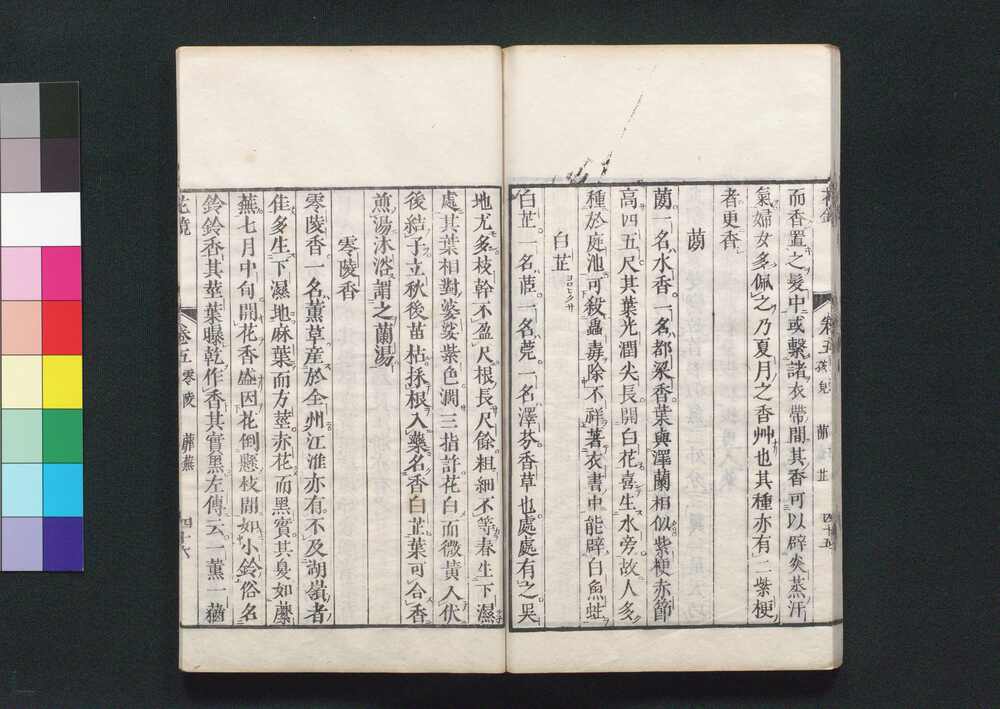 而香置之髮中或繫諸衣帶間其香可以辟炎蒸汗
氣婦女多佩之乃夏月之香艸也其種亦有二紫梗
者更香
蕳
蕳一名水香一名都梁香葉與澤蘭相似紫梗赤節
高四五尺其葉光潤尖長開白花喜生水旁故人多
種於庭池可殺蟲毒除不祥著衣書中能辟白魚蛀
白芷 ヨロヒクサ
白芷一名茝一名莞一名澤芬香草也處處有之吳
地尤多枝幹不盈尺根長尺餘粗細不等春生下濕
處其葉相對婆娑紫色濶三指許花白而微黃入伏
後結子立秋後苗枯採根入藥名香白芷葉可合香
煎湯沐浴謂之蘭湯
零陵香
零陵香一名薰草産於全州江淮亦有不及湖嶺者
佳多生下濕地麻葉而方莖赤花而黑實其臭如蘼
蕪七月中旬開花香盛因花倒懸枝間如小鈴俗名
鈴鈴香其莖葉曝乾作香其實黑左傳云一薰一蕕
花鏡 卷五 零陵 蘼蕪 四十六